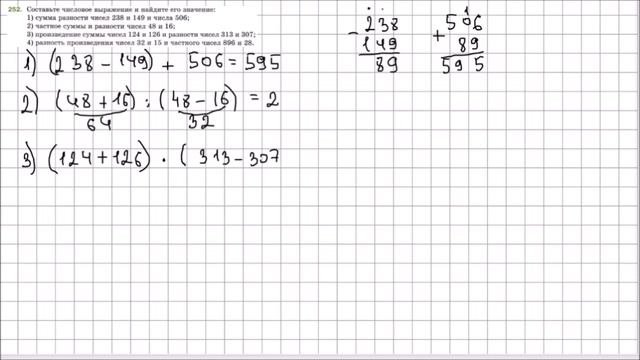 252. Составьте числовое выражение и найдите его значение:
1) сумма разности чисел 238 и 149 и числа 506;
2) частное суммы и разности чисел 48 и 16;
3) произведение суммы чисел 124 и 126 и разности чисел 313 и 307;
4) разность произведения чисел 32 и 15 и частного чисел 896 и 28.
1) (238 - 149) + 506 = 595
2) (48 + 16) : (48 - 16) = 2
64 32
3) (124 + 126) · ( 313 - 307
- 238
149
89
1
+ 506
89
595